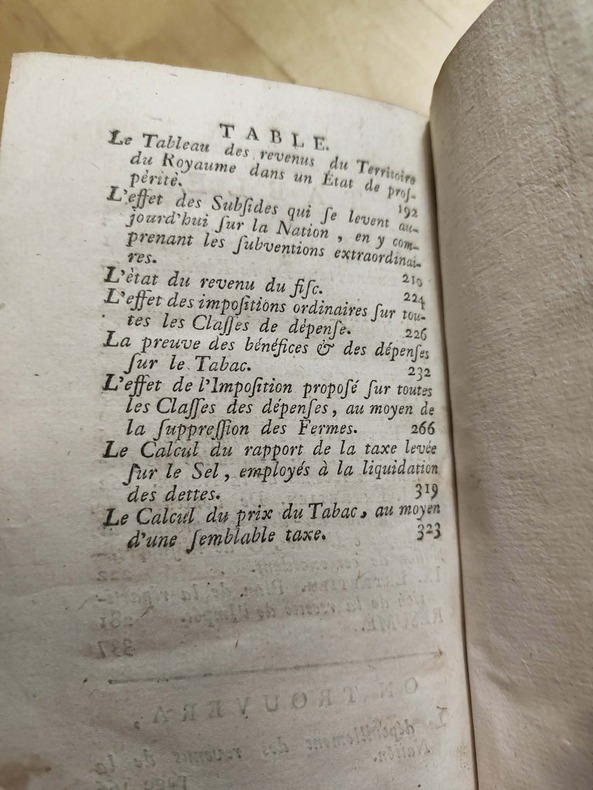 TABLE.
Le Tableau des revenus du Territoire
du Royaume dans un État de pros-
périté. 192
L'effet des Subſides qui ſe levent au-
jourd'hui ſur la Nation, en y com-
prenant les ſubventions extraordinai-
res. 219
L'état du revenu du fiſc. 224
L'effet des impoſitions ordinaires ſur tou-
tes les Claſſes de dépenſe. 226
La preuve des bénéfices & des dépenſes
ſur le Tabac. 232
L'effet de l'Impoſition propoſé ſur toutes
les Claſſes des dépenſes, au moyen de
la ſuppreſſion des Fermes. 266
Le Calcul du rapport de la taxe levée
ſur le Sel, employés à la liquidation
des dettes. 319
Le Calcul du prix du Tabac, au moyen
d'une ſemblable taxe. 323
RESUME.
337
ON TROUVERA,
Le dépouillement des revenus de la
Nation.